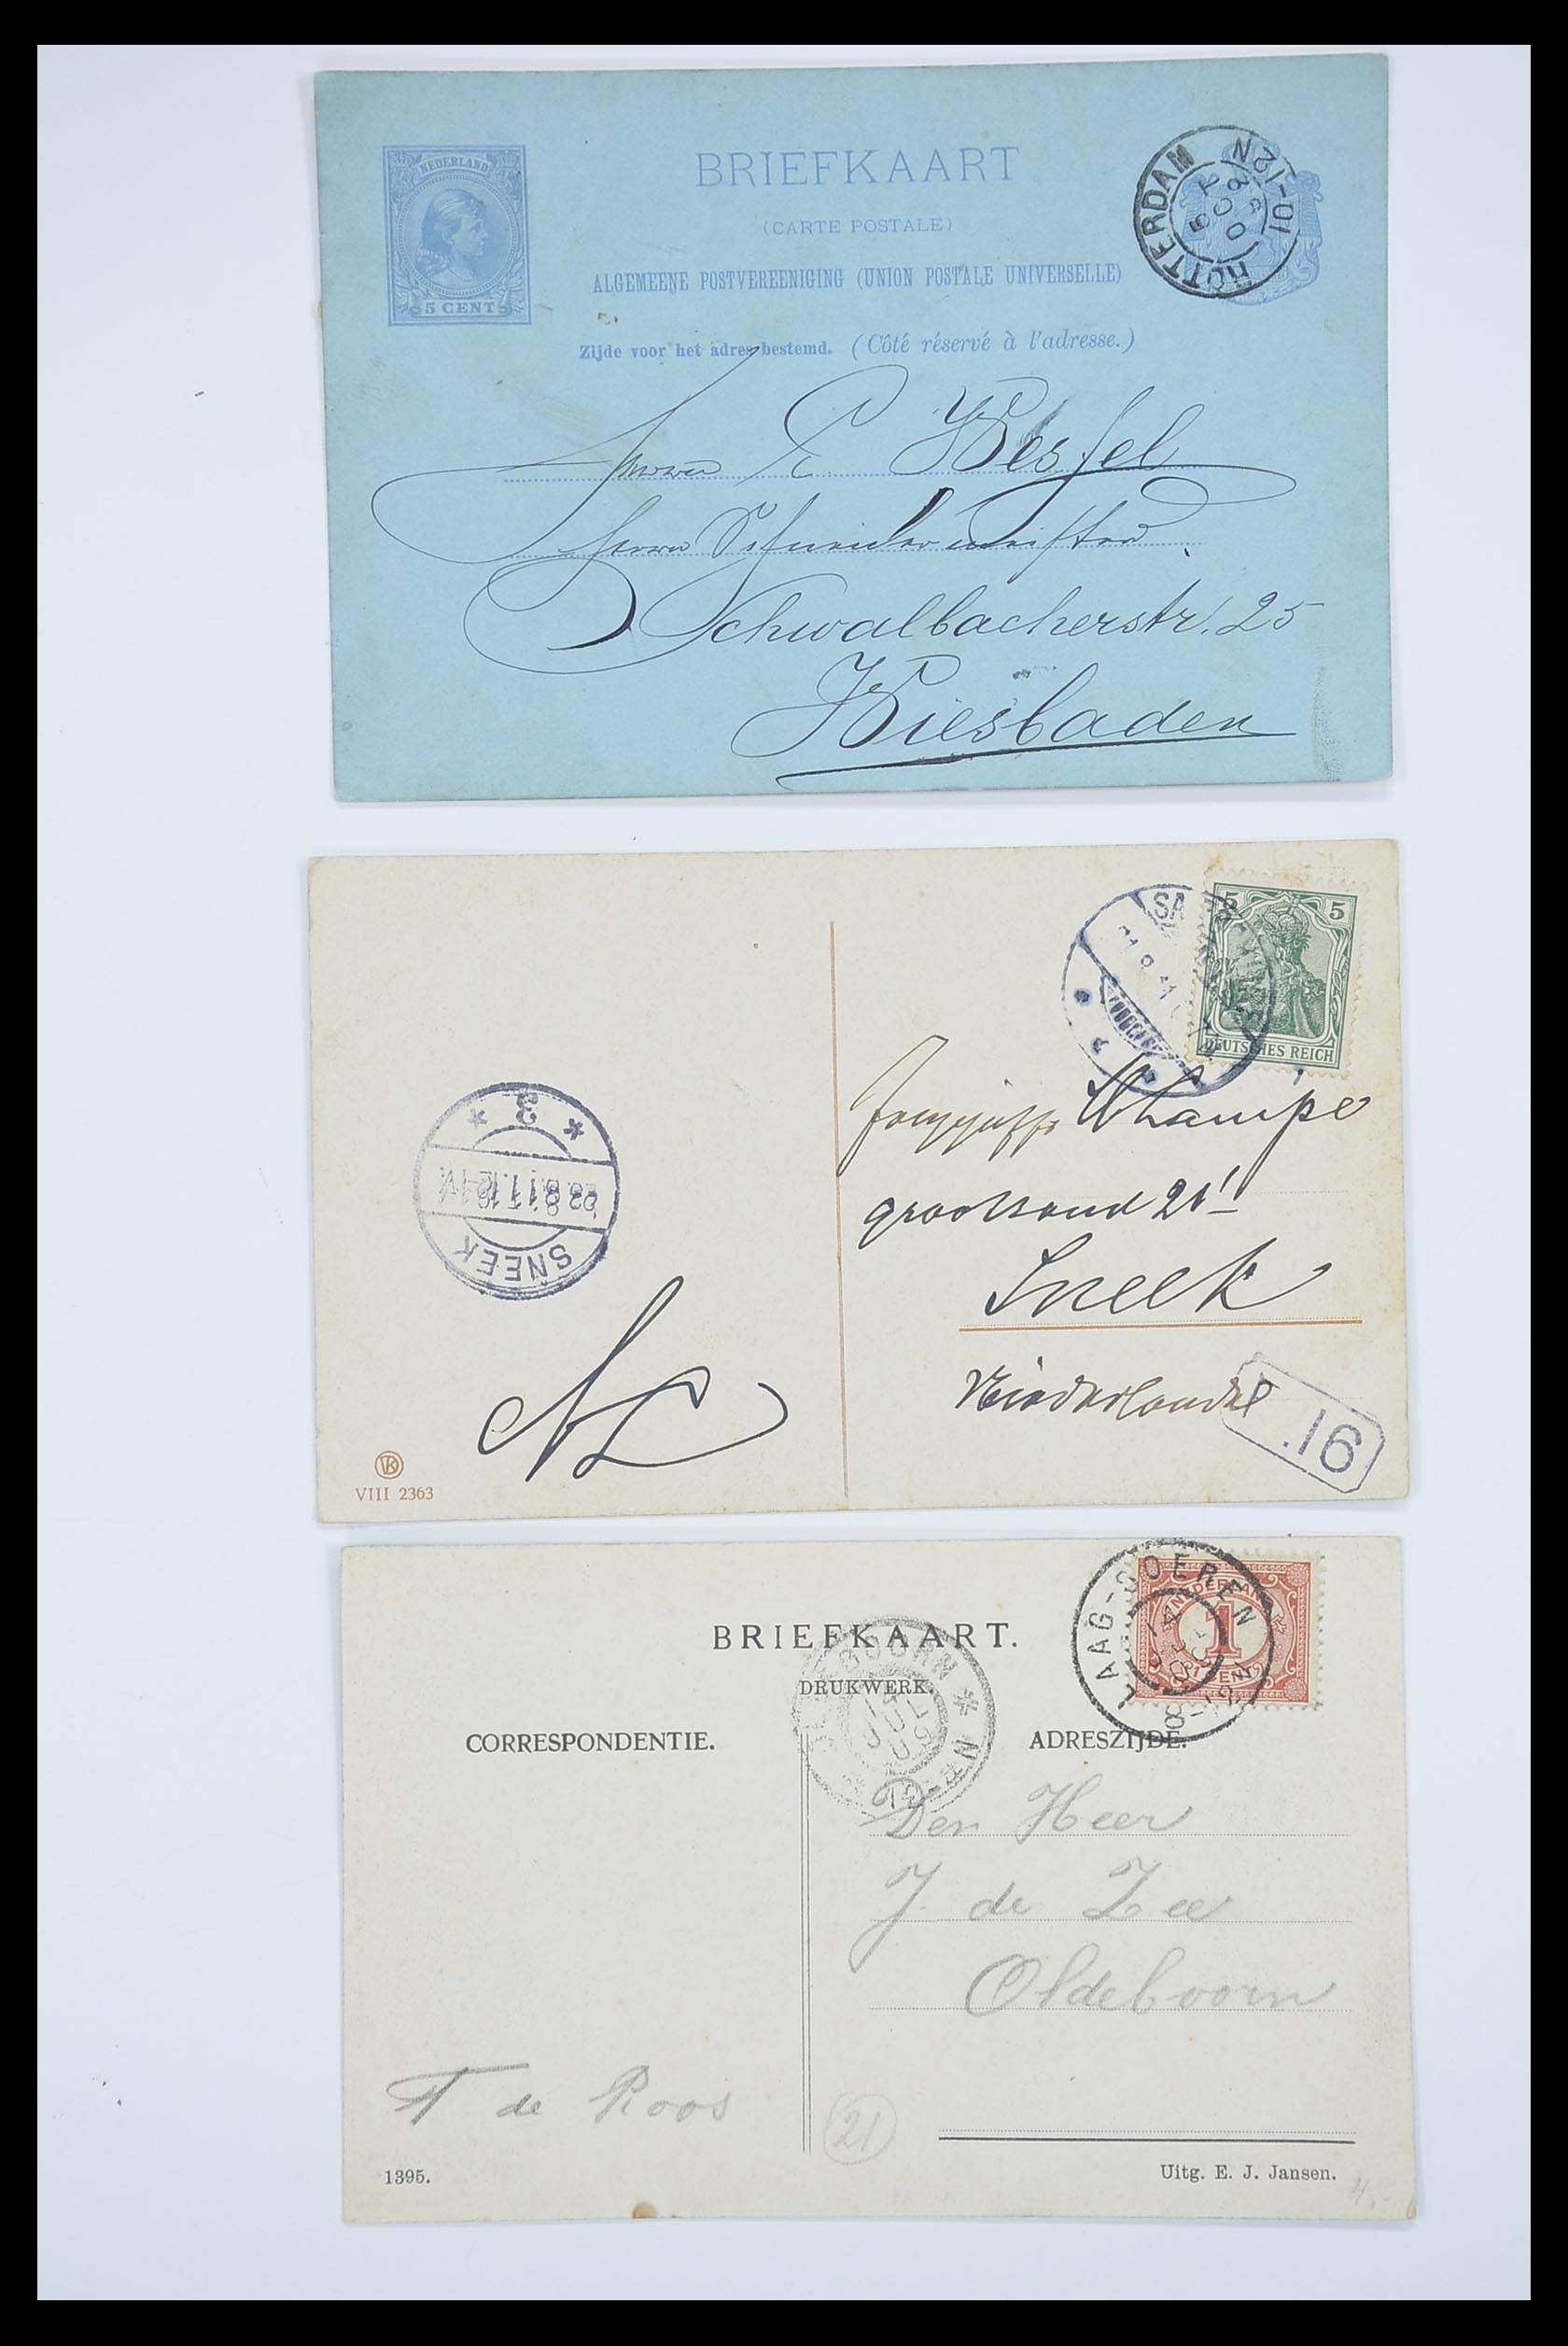 NEDERLAND
5 CENT
BRIEFKAART
(CARTE POSTALE)
ALGEMEENE POSTVEREENIGING (UNION POSTALE UNIVERSELLE)
Zijde voor het adres bestemd. (Côté réservé à l'adresse.)
ROTTERDAM
5 OCT
10-12N
Herrn
Herrn Schneidermeister
Schwalbacherstr. 25
Wiesbaden
5 5
DEUTSCHES REICH
3
SNEEK
Sneek
Niederlande
16
VK
VIII 2363
BRIEFKAART.
DRUKWERK.
CORRESPONDENTIE.
ADRESZIJDE.
NEDERLAND
1
CENT
LAAG-SOEREN
14 JUL 09
8-12
JUL 09
Den Heer
J. de Zee
Oldeboorn
de Roos
21
1395.
Uitg. E. J. Jansen.
4,-